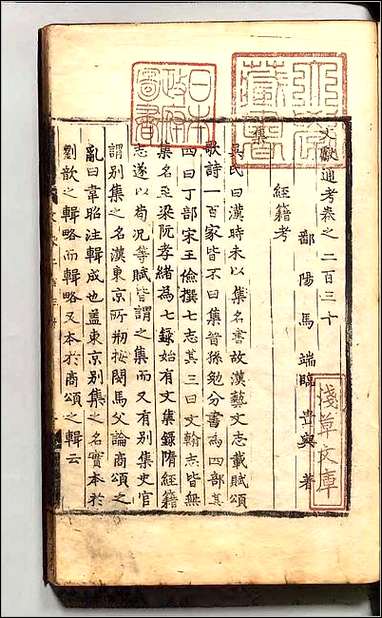 文獻通考卷之二百三十
鄱陽馬端臨貴與著
經籍考
集
吳氏曰漢時未以集名書故漢藝文志載賦頌
歌詩一百家皆不曰集晉孫勉分書為四部其
四曰丁部宋王儉撰七志其三曰文翰志皆無
集名至梁阮孝緒為七錄始有文集錄隋經籍
志遂以荀况等賦皆謂之集而又有別集史官
謂別集之名漢東京所刱按閔馬父論商頌之
亂曰韋昭注輯成也盖東京別集之名實本於
劉歆之輯略而輯略又本於商頌之輯云
日本政府圖書
淺草文庫